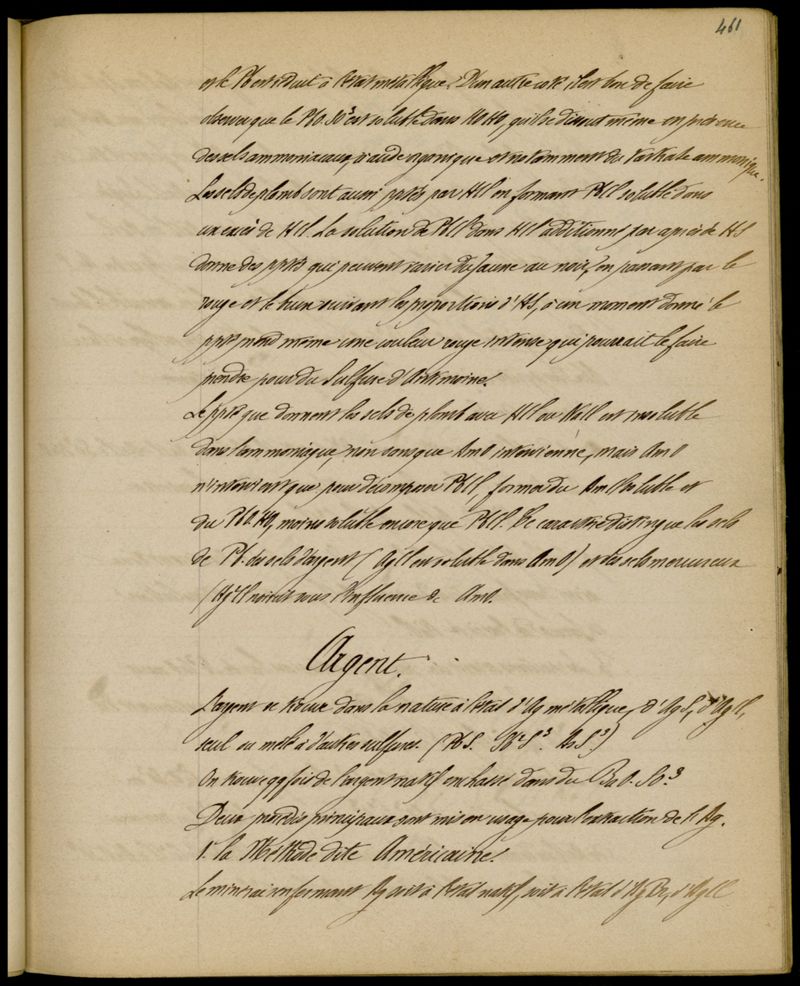 461
et le Pb est réduit à l'état métallique. D'un autre coté il est bon de faire
observer que le PbO.SO³ est soluble dans KOHO, qu'il se dissout même en présence
des sels ammoniacaux, d'acide organique et notamment du tartrate ammonique.
Les sels de plomb sont aussi pptés par HCl en formant PbCl soluble dans
un excès de HCl. La solution de PbCl dans HCl additionné par après de HS
donne des pptés qui peuvent varier du jaune au noir, en passant par le
rouge et le brun suivant les proportions d'HS, à un moment donné le
ppté prend même une couleur rouge intense qui pourrait le faire
prendre pour du Sulfure d'Antimoine.
Le ppté que donnent les sels de plomb avec HCl ou KCl est insoluble
dans l'ammoniaque, non sans que AmO intervienne, mais AmO
n'intervient que pour décomposer PbCl, former du AmCl soluble et
du PbO.HO, moins soluble encore que PbCl. Ce caractère distingue les sels
de Pb. des sels d'argent (AgCl est soluble dans AmO) et des sels mercureux
(Hg²Cl noircit sous l'influence de AmO.
Argent.
L'argent se trouve dans la nature à l'état d'Ag métallique, d'AgS, d'AgCl,
seul ou mêlé à d'autres sulfures. (PbS. Sb²S³. AsS³)
On trouve qqfois de l'argent natif enchassé dans du BaO.SO³
Deux procédés principaux sont mis en usage pour l'extraction de l'Ag.
1. la Méthode dite Américaine.
Le minerai renfermant Ag soit à l'état natif, soit à l'état d'AgBr, d'AgCl